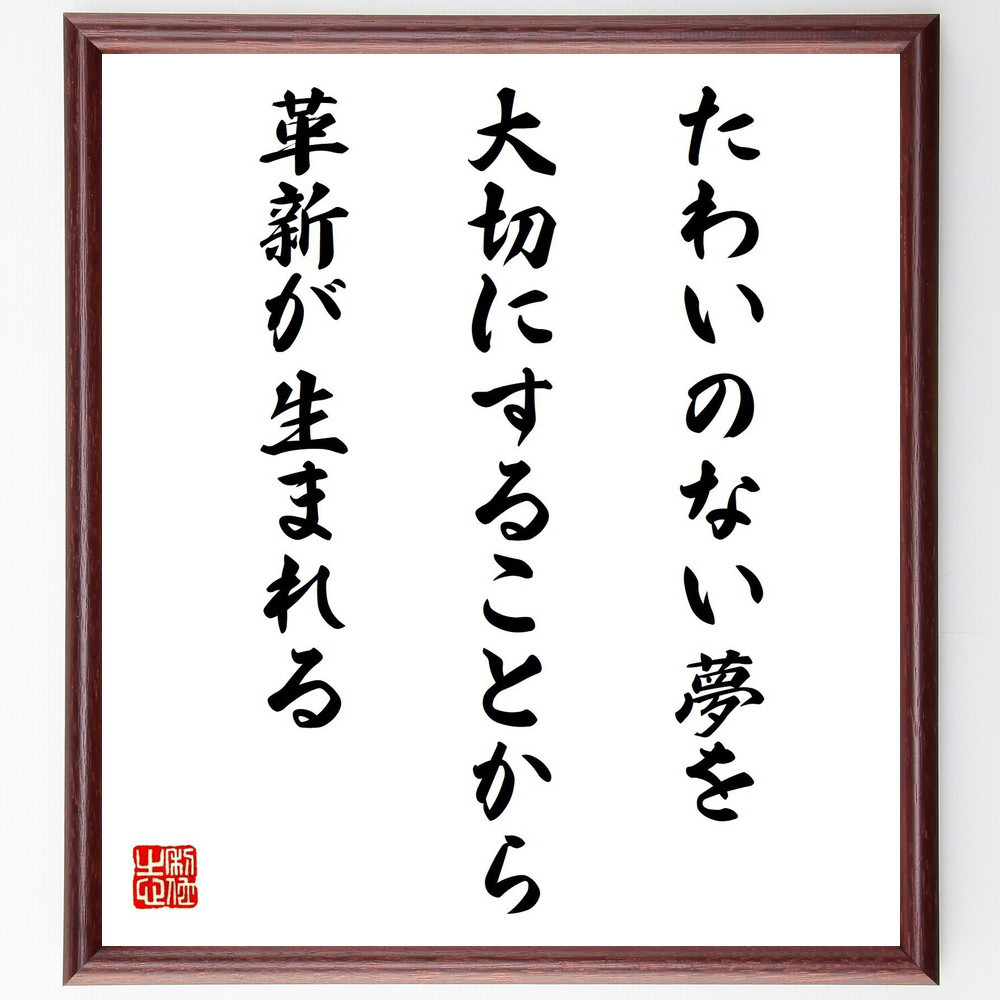 たわいのない夢を
大切にすることから
革新が生まれる